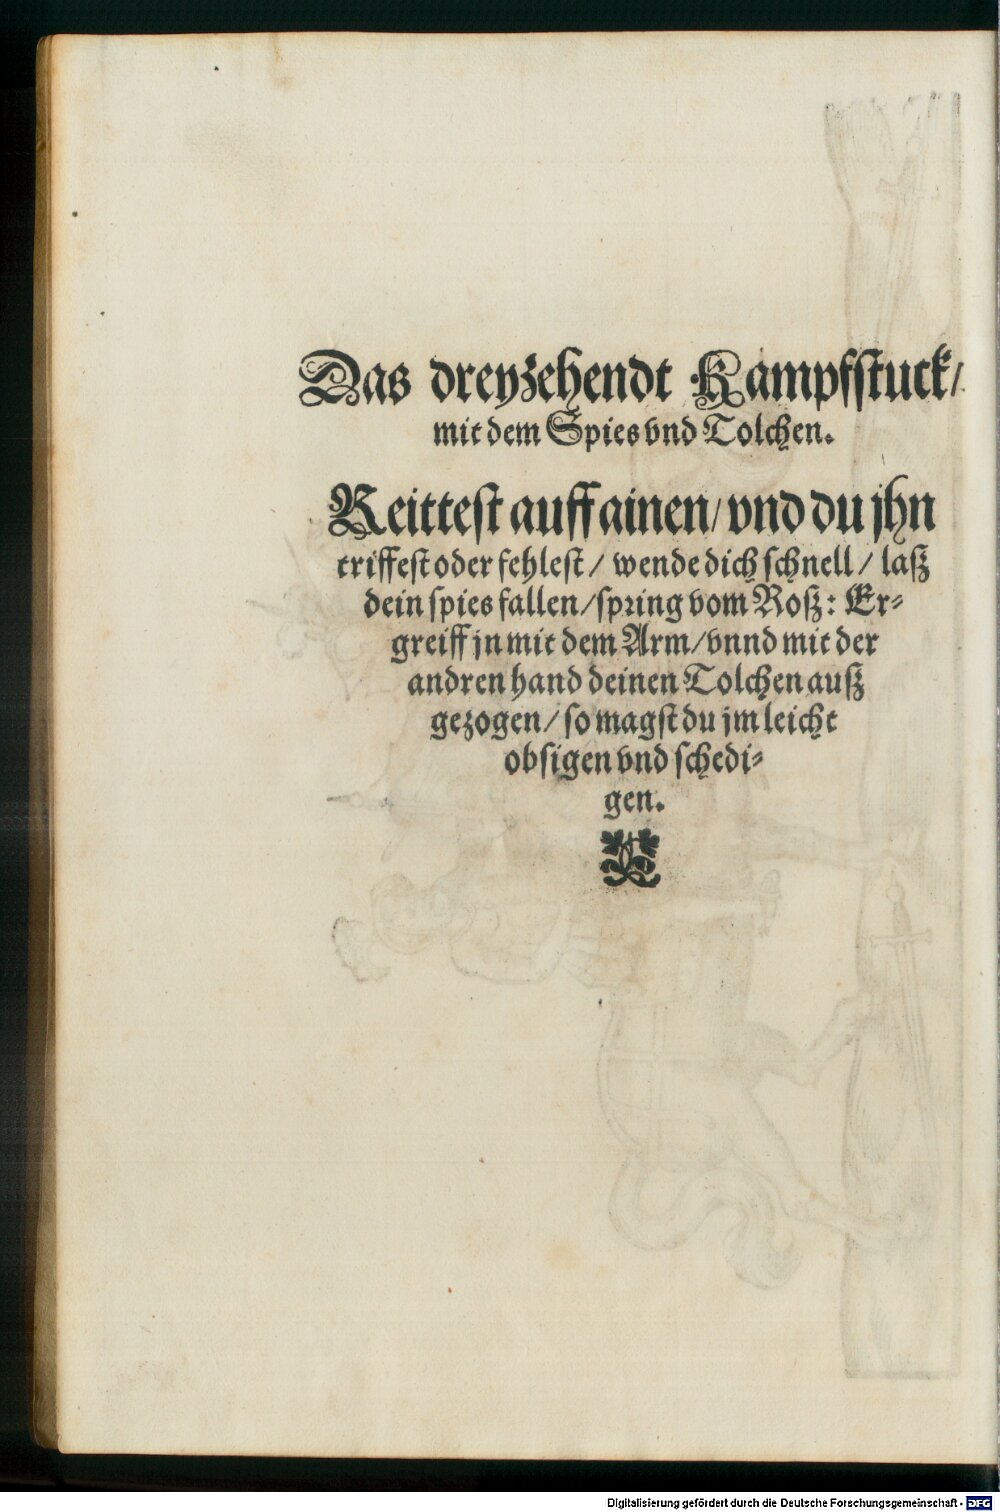 Das dreyzehendt Kampfstuck/
mit dem Spies vnd Tolchen.
Reittest auff ainen/ vnd du jhn
triffest oder fehlest/ wende dich schnell/ laß
dein spies fallen/ spring vom Roß: Er-
greiff jn mit dem Arm/ vnnd mit der
andren hand deinen Tolchen auß
gezogen/ so magst du jm leicht
obsigen vnd schedi-
gen.
Digitalisierung gefördert durch die Deutsche Forschungsgemeinschaft - DFG